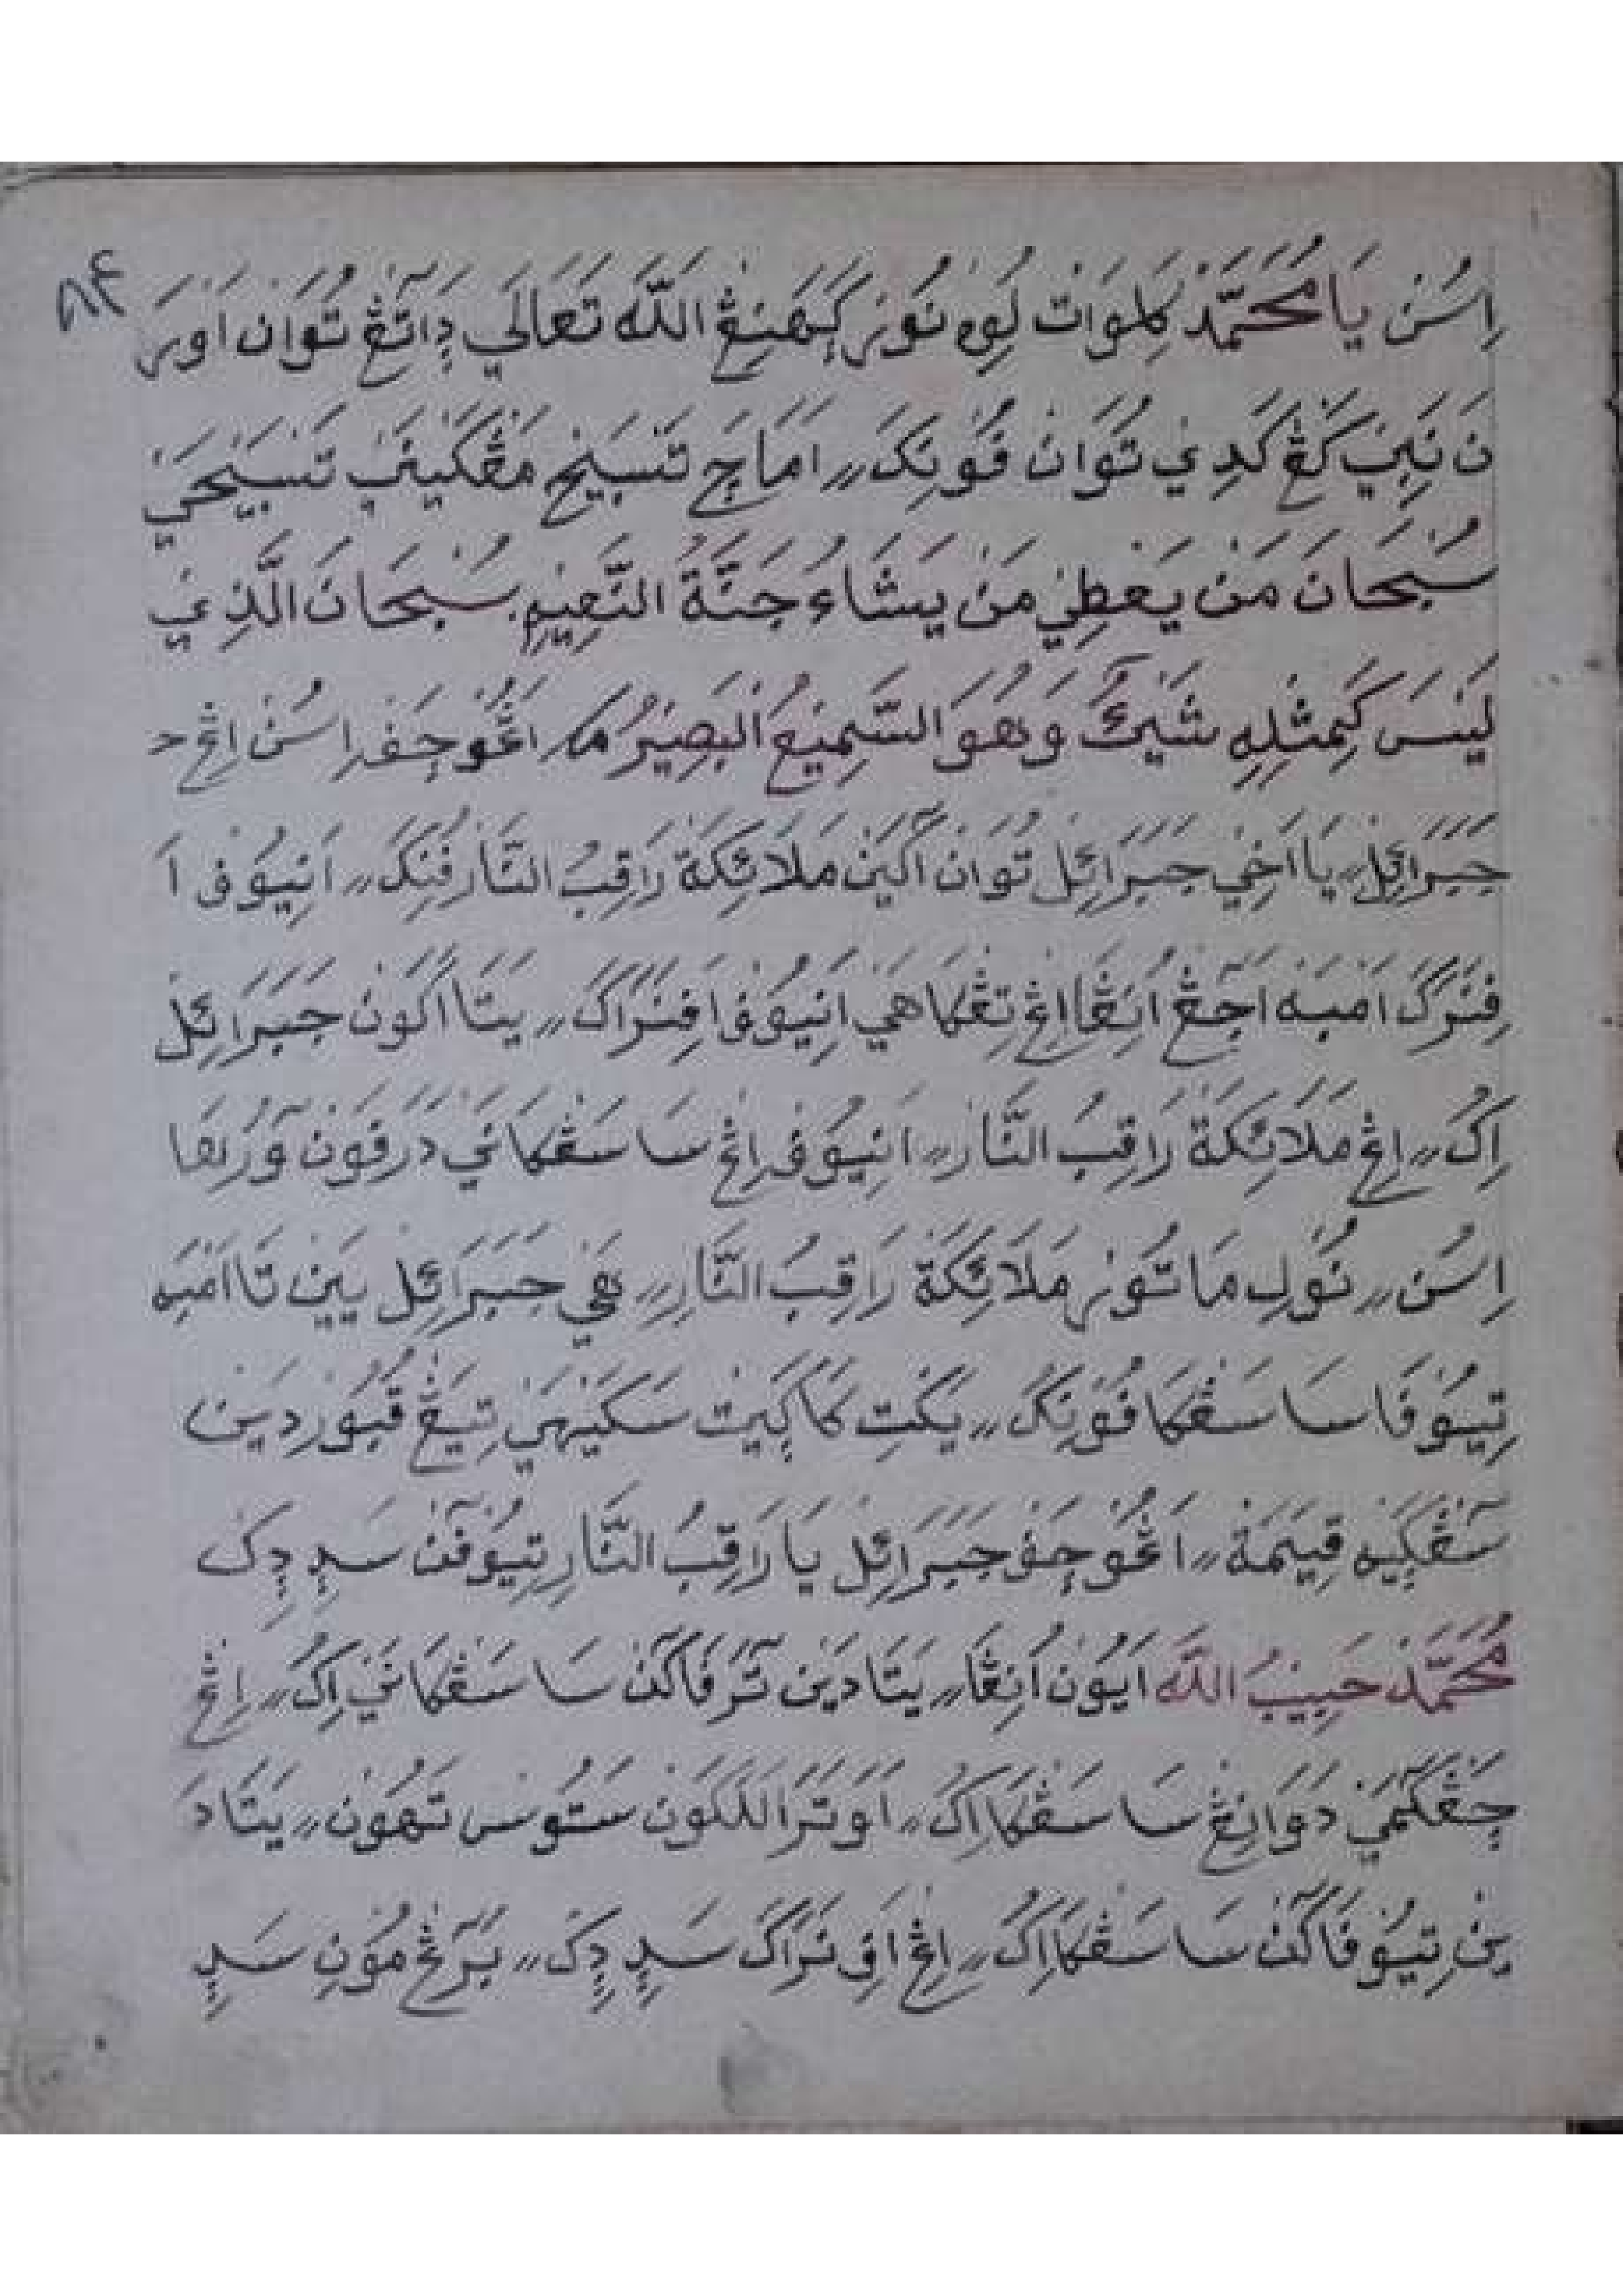 ٨٤
اِسُنْ يَا مُحَمَّدْ كَلِوَاتْ لُوِهْ نُوْرَ كَهَنِڠْ اَللّٰهَ تَعَالَي دَاتَڠْ تُوَانْ اَوْرَ
نَ نَبِيْ كَڠْ كَدِيْ تُوَانْ فُوْنِكَ // اَمَاچَ تَسْبِيْحْ مَڠْكَيْنَيْ تَسْبِيْحَيْ
سُبْحَانَ مَنْ يَعْطِيْ مَنْ يَشَاءُ جَنَّةُ النَّعِيْمِ سُبْحَانَ الَّذِيْ
لَيْسَ كَمِثْلِهِ شَيْئٌ وَهُوَ السَّمِيْعُ الْبَصِيْرُ اَڠُوْچَفْ اِسُنْ اِڠْ
جَبَرَائِلْ // يَا اَخِيْ جَبَرَائِلْ تُوَانْ اَكَيْنْ مَلَائِكَةْ رَاقِبُ النَّارْ فُنِكَ // اَنِيُوْفْ اَ
فِنْرَكَ اَمْبَهْ اَجَڠْ اَنِڠَا اِڠْ تِڠْكَاهَيْ اَنِيُوْفْ اَفِنْرَاكَ // يَتَا اَكَوْنْ جَبَرَائِلْ
اِكُ // اِڠْ مَلَائِكَةْ رَاقِبُ النَّارْ // اَنِيُوْفْ اِڠْ سَاسَڠْكَانَيْ دَرَفَوْنْ وَرُنِڠَا
اِسُنْ // نُوْلِ مَاتُوْرْ مَلَائِكَةْ رَاقِبُ النَّارِ // هَيْ جَبَرَائِلْ يَيْنْ تَا اَمْبَهْ
تِيُوْفَا سَاسَڠْكَا فُوْنِكَ // يَكْتِ كَاكَيْتْ سَكَيْهَيْ تِيَڠْ قُبُوْرْ دَيْنْ
سَڠْكَيْهْ قِيَمَةْ // اَڠُوْچَفْ جَبَرَائِلْ يَا رَاقِبُ النَّارِ تِيُوْفَنْ سَدِدِكْ
مُحَمَّدْ حَبِيْبُ اللّٰهْ اَيُوْنْ اَنِڠَا // يَتَا دَيْنْ تَرَفَاكَنْ سَاسَڠْكَانَيْ اِكُ // اِڠْ
چَڠْكَمَيْ دَوَانِڠْ سَاسَڠْكَا اِكُ // اَوْتَرَا لَلَكَوْنْ سَتُوْسْ تَهُوْنْ // يَتَا دَ
يْنْ تِيُوْفَاكَنْ سَاسَڠْكَا اِكُ // اِڠْ اَفِ نَرَاكَ سَدِدِكْ // بَرَڠْ مُوْنِ سَدِ